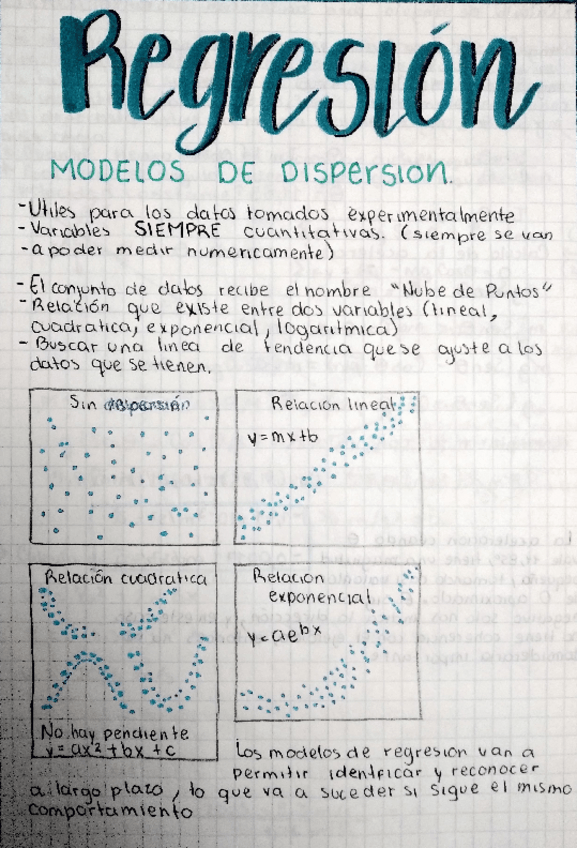 Regresión
MODELOS DE DISPERSION.
-Utiles para los datos tomados experimentalmente
-Variables SIEMPRE cuantitativas. (siempre se van
-a poder medir numericamente)
-El conjunto de datos recibe el nombre "Nube de Puntos"
-Relación que existe entre dos variables (lineal,
cuadratica, exponencial, logaritmica)
-Buscar una linea de tendencia que se ajuste a los
datos que se tienen.
Sin dispersión
Relación lineal
y=mx+b
Relación cuadratica
No hay pendiente
y=ax²+bx+c
Relacion
exponencial
y=ae^bx
Los modelos de regresion van a
permitir identificar y reconocer
a largo plazo, lo que va a suceder si sigue el mismo
comportamiento